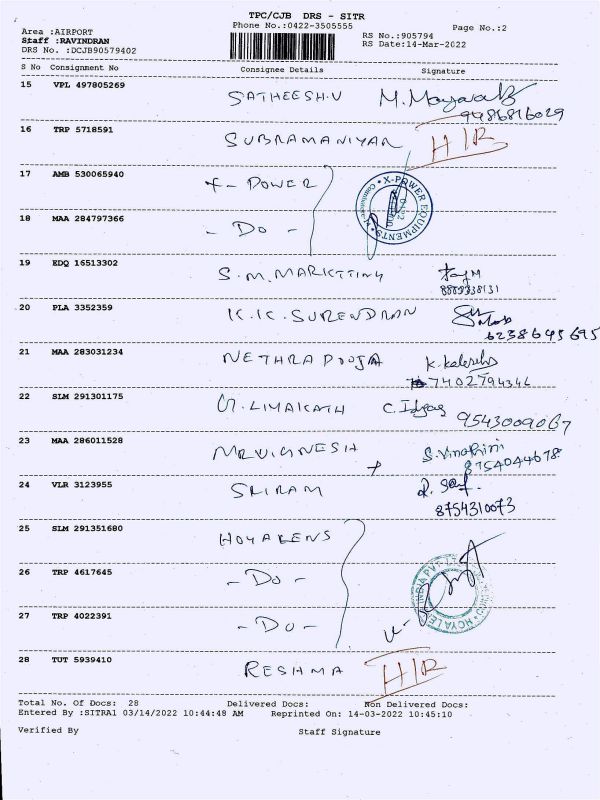 TPC/CJB DRS - SITR
Phone No.:0422-3505555
Page No.:2
Area :AIRPORT
RS No.:905794
Staff :RAVINDRAN
RS Date:14-Mar-2022
DRS No. :DCJB90579402
S No Consignment No Consignee Details Signature
15 VPL 497805269 SATHEESH.V
9486816029
16 TRP 5718591 SUBRAMANIYAN H/R
17 AMB 530065940 X-POWER
X-POWER EQUIPMENTS
18 MAA 284797366 - DO -
19 EDQ 16513302 S.M. MARKETING
8889338131
20 PLA 3352359 K.K. SURENDRAN
6238645695
21 MAA 283031234 NETHRA POOJA
7402794346
22 SLM 291301175
9543009067
23 MAA 286011528 MRVIGNESH S. Vinothini
8754044678
24 VLR 3123955 SRIRAM
8754310073
25 SLM 291351680 HOYALENS
26 TRP 4617645 - DO -
27 TRP 4022391 - DO -
28 TUT 5939410 RESHMA H/R
Total No. Of Docs: 28 Delivered Docs: Non Delivered Docs:
Entered By :SITRA1 03/14/2022 10:44:48 AM Reprinted On: 14-03-2022 10:45:10
Verified By Staff Signature